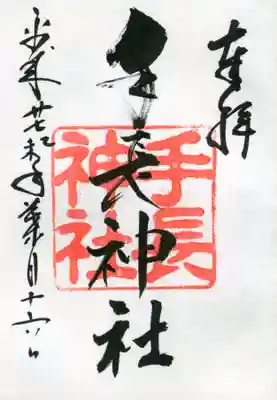 奉拝
手長神社
手長
神社
平成廿七年葉月十六日